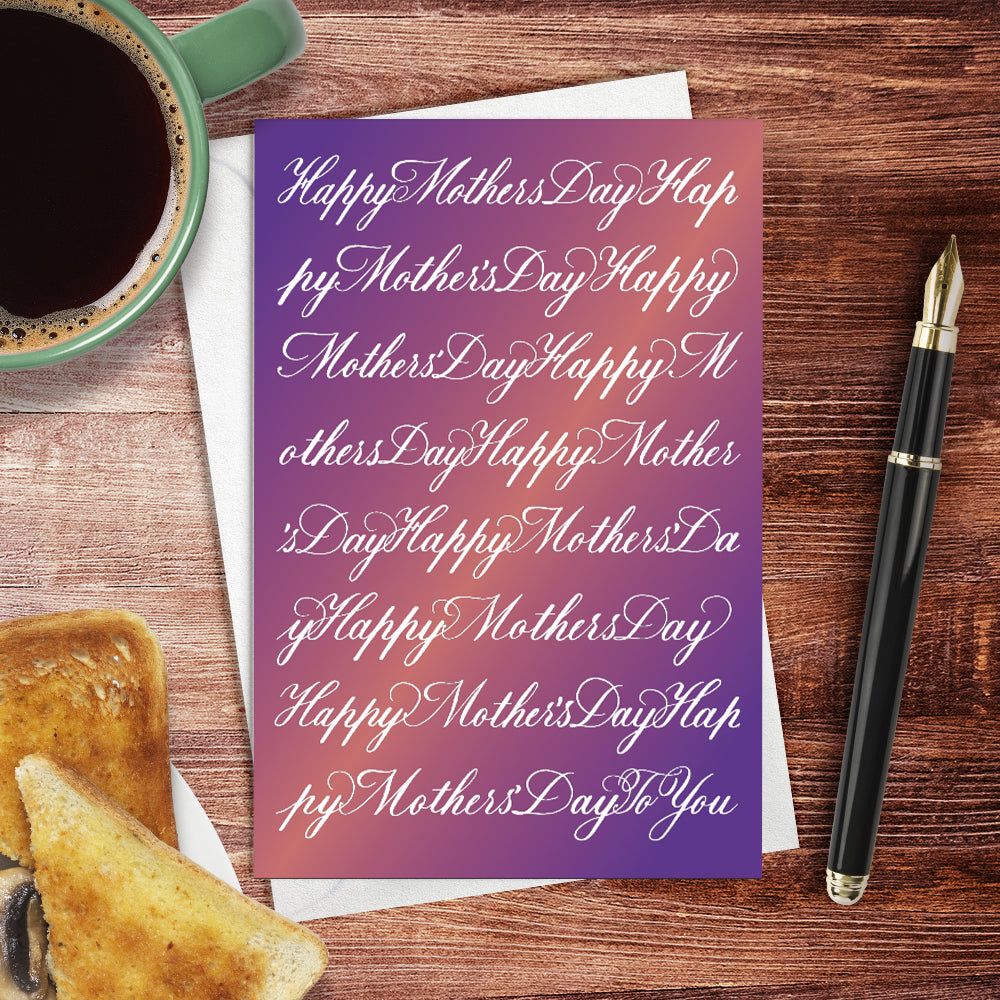 HappyMothersDayHap
pyMother'sDayHappy
Mothers'DayHappyM
othersDayHappyMother
'sDayHappyMothers'Da
yHappyMothersDay
HappyMother'sDayHap
pyMothers'DayToYou